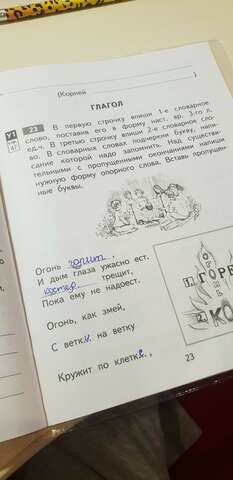 (Корней )
ГЛАГОЛ
У1
с. 98
47
23 В первую строчку впиши 1-е словарное
слово, поставив его в форму наст. вр. 3-го л.
ед.ч. В третью строчку впиши 2-е словарное сло-
во. В словарных словах подчеркни букву, напи-
сание которой надо запомнить. Над существи-
тельными с пропущенными окончаниями напиши
нужную форму опорного слова. Вставь пропущен-
ные буквы.
Огонь горит,
И дым глаза ужасно ест.
костер трещит,
Пока ему не надоест.
Огонь, как змей,
С ветки на ветку
Кружит по клетке,
О
1. ГОРЕ
Н
2. КО
23